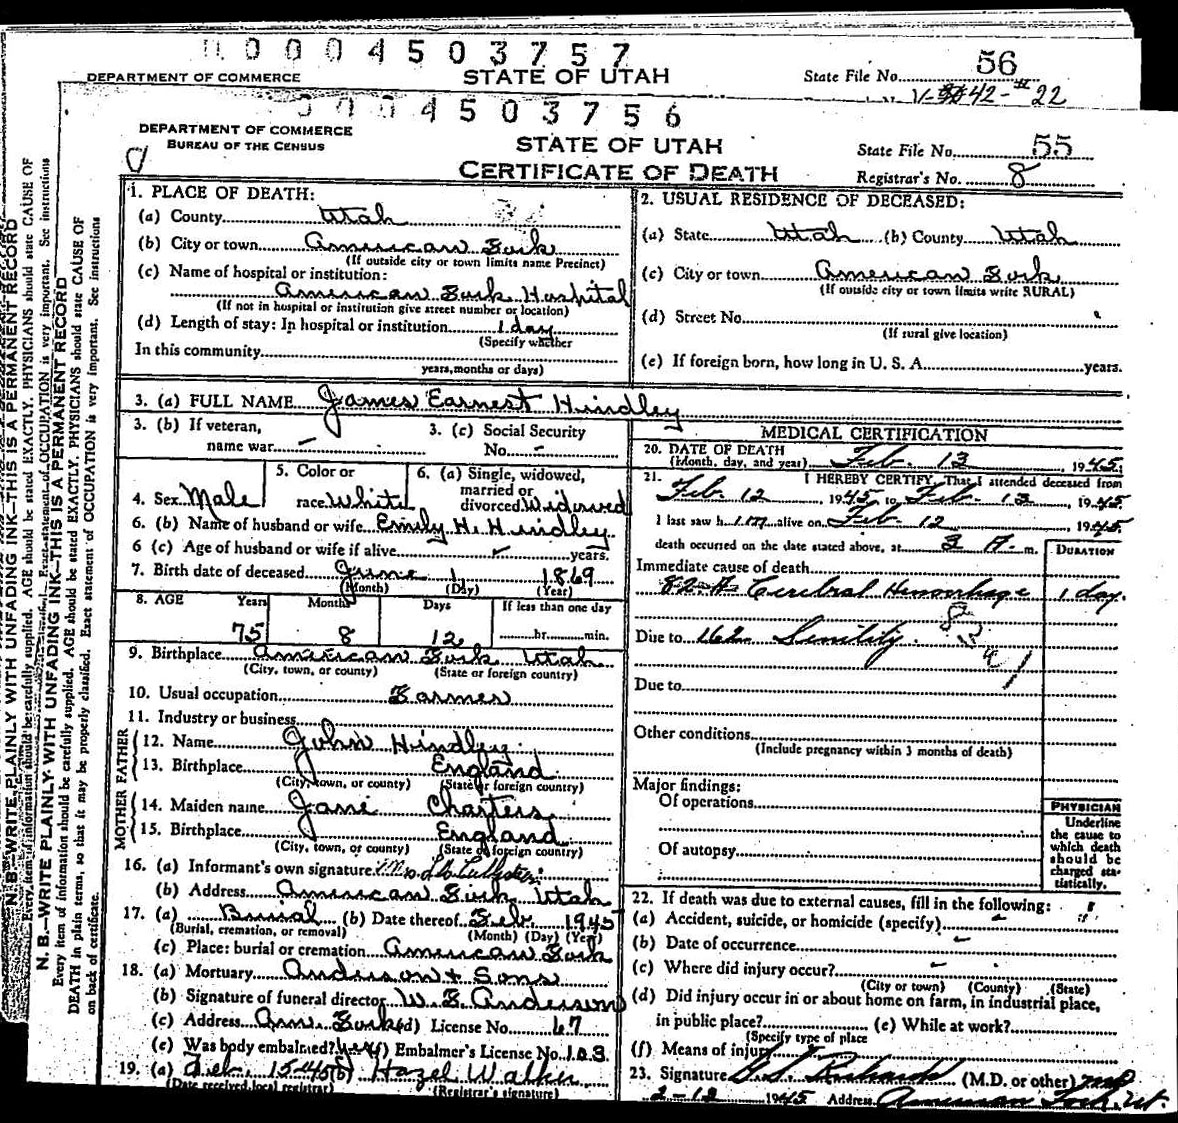 0 0 0 4 5 0 3 7 5 7
DEPARTMENT OF COMMERCE
STATE OF UTAH
State File No. 56
V-42-22
0 0 4 5 0 3 7 5 6
DEPARTMENT OF COMMERCE
BUREAU OF THE CENSUS
STATE OF UTAH
CERTIFICATE OF DEATH
State File No. 55
Registrar's No. 8
1. PLACE OF DEATH:
(a) County Utah
(b) City or town American Fork
(If outside city or town limits name Precinct)
(c) Name of hospital or institution:
American Fork Hospital
(If not in hospital or institution give street number or location)
(d) Length of stay: In hospital or institution 1 day
(Specify whether
In this community
years, months or days)
2. USUAL RESIDENCE OF DECEASED:
(a) State Utah (b) County Utah
(c) City or town American Fork
(If outside city or town limits write RURAL)
(d) Street No.
(If rural give location)
(e) If foreign born, how long in U. S. A. years.
3. (a) FULL NAME James Earnest Hindley
3. (b) If veteran,
name war –
3. (c) Social Security
No. –
4. Sex Male
5. Color or
race White
6. (a) Single, widowed,
married or
divorced Widowed
6. (b) Name of husband or wife Emily H. Hindley
6 (c) Age of husband or wife if alive years.
7. Birth date of deceased June 1 1869
(Month) (Day) (Year)
8. AGE Years Months Days If less than one day
75 8 12 hr. min.
9. Birthplace American Fork Utah
(City, town, or county) (State or foreign country)
10. Usual occupation Farmer
11. Industry or business
FATHER
12. Name John Hindley
13. Birthplace England
(City, town, or county) (State or foreign country)
MOTHER
14. Maiden name Jane Charters
15. Birthplace England
(City, town, or county) (State or foreign country)
16. (a) Informant's own signature Mrs.
(b) Address American Fork Utah
17. (a) Burial (b) Date thereof Feb. 1945
(Burial, cremation, or removal) (Month) (Day) (Year)
(c) Place: burial or cremation American Fork
18. (a) Mortuary Anderson & Sons
(b) Signature of funeral director W. E. Anderson
(c) Address Am. Fork (d) License No. 67
(e) Was body embalmed? yes (f) Embalmer's License No. 103
19. (a) Feb. 15-45 (b) Hazel Walker
(Date received local registrar) (Registrar's signature)
MEDICAL CERTIFICATION
20. DATE OF DEATH
(Month, day, and year) Feb. 13, 1945.
21. I HEREBY CERTIFY, That I attended deceased from
Feb. 12, 1945 to Feb. 13, 1945.
I last saw h im alive on Feb 12 1945
death occurred on the date stated above, at 3 A. m.
DURATION
Immediate cause of death
82-A Cerebral Hemorrhage 1 day.
Due to 162 Senility.
Due to
Other conditions
(Include pregnancy within 3 months of death)
Major findings:
Of operations
Of autopsy
PHYSICIAN
Underline
the cause to
which death
should be
charged sta-
tistically.
22. If death was due to external causes, fill in the following:
(a) Accident, suicide, or homicide (specify)
(b) Date of occurrence
(c) Where did injury occur?
(City or town) (County) (State)
(d) Did injury occur in or about home on farm, in industrial place,
in public place? (e) While at work?
(Specify type of place
(f) Means of injury
23. Signature Richards (M.D. or other) MD
2-12 1945 Address American Fork, Ut.
N. B.—WRITE PLAINLY WITH UNFADING INK—THIS IS A PERMANENT RECORD
Every item of information should be carefully supplied. AGE should be stated EXACTLY. PHYSICIANS should state CAUSE OF
DEATH in plain terms, so that it may be properly classified. Exact statement of OCCUPATION is very important. See instructions
on back of certificate.
N. B.—WRITE PLAINLY WITH UNFADING INK—THIS IS A PERMANENT RECORD
Every item of information should be carefully supplied. AGE should be stated EXACTLY. PHYSICIANS should state CAUSE OF